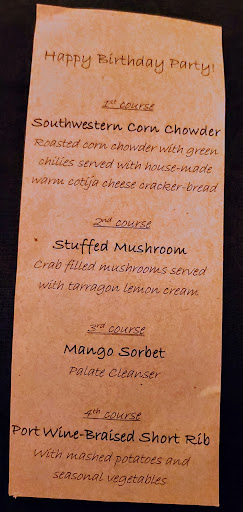 Happy Birthday Party!
1st course
Southwestern Corn Chowder
Roasted corn chowder with green
chilies served with house-made
warm cotija cheese cracker-bread
2nd course
Stuffed Mushroom
Crab filled mushrooms served
with tarragon lemon cream
3rd course
Mango Sorbet
Palate Cleanser
4th course
Port Wine-Braised Short Rib
With mashed potatoes and
seasonal vegetables